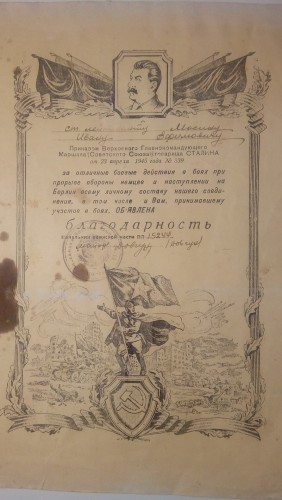 Ивану Ефимовичу
Приказом Верховного Главнокомандующего
Маршала Советского Союза товарища СТАЛИНА
от 23 апреля 1945 года №
за отличные боевые действия в боях при
прорыве обороны немцев и наступлении на
Берлин всему личному составу нашего соеди-
нения, в том числе и Вам, принимавшему
участие в боях, ОБ'ЯВЛЕНА
благодарность
Командир войсковой части пп 15244